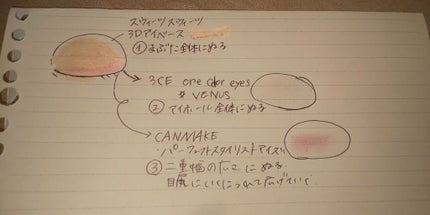 スウィーツスウィーツ
3Dアイベース
①まぶた全体にぬる
3CE one color eyes
# VENUS
② アイホール全体にぬる
CANMAKE
・パーフェクトスタイリストアイズ
③ 二重幅のとこにぬる
目尻にいくにつれて広げていく